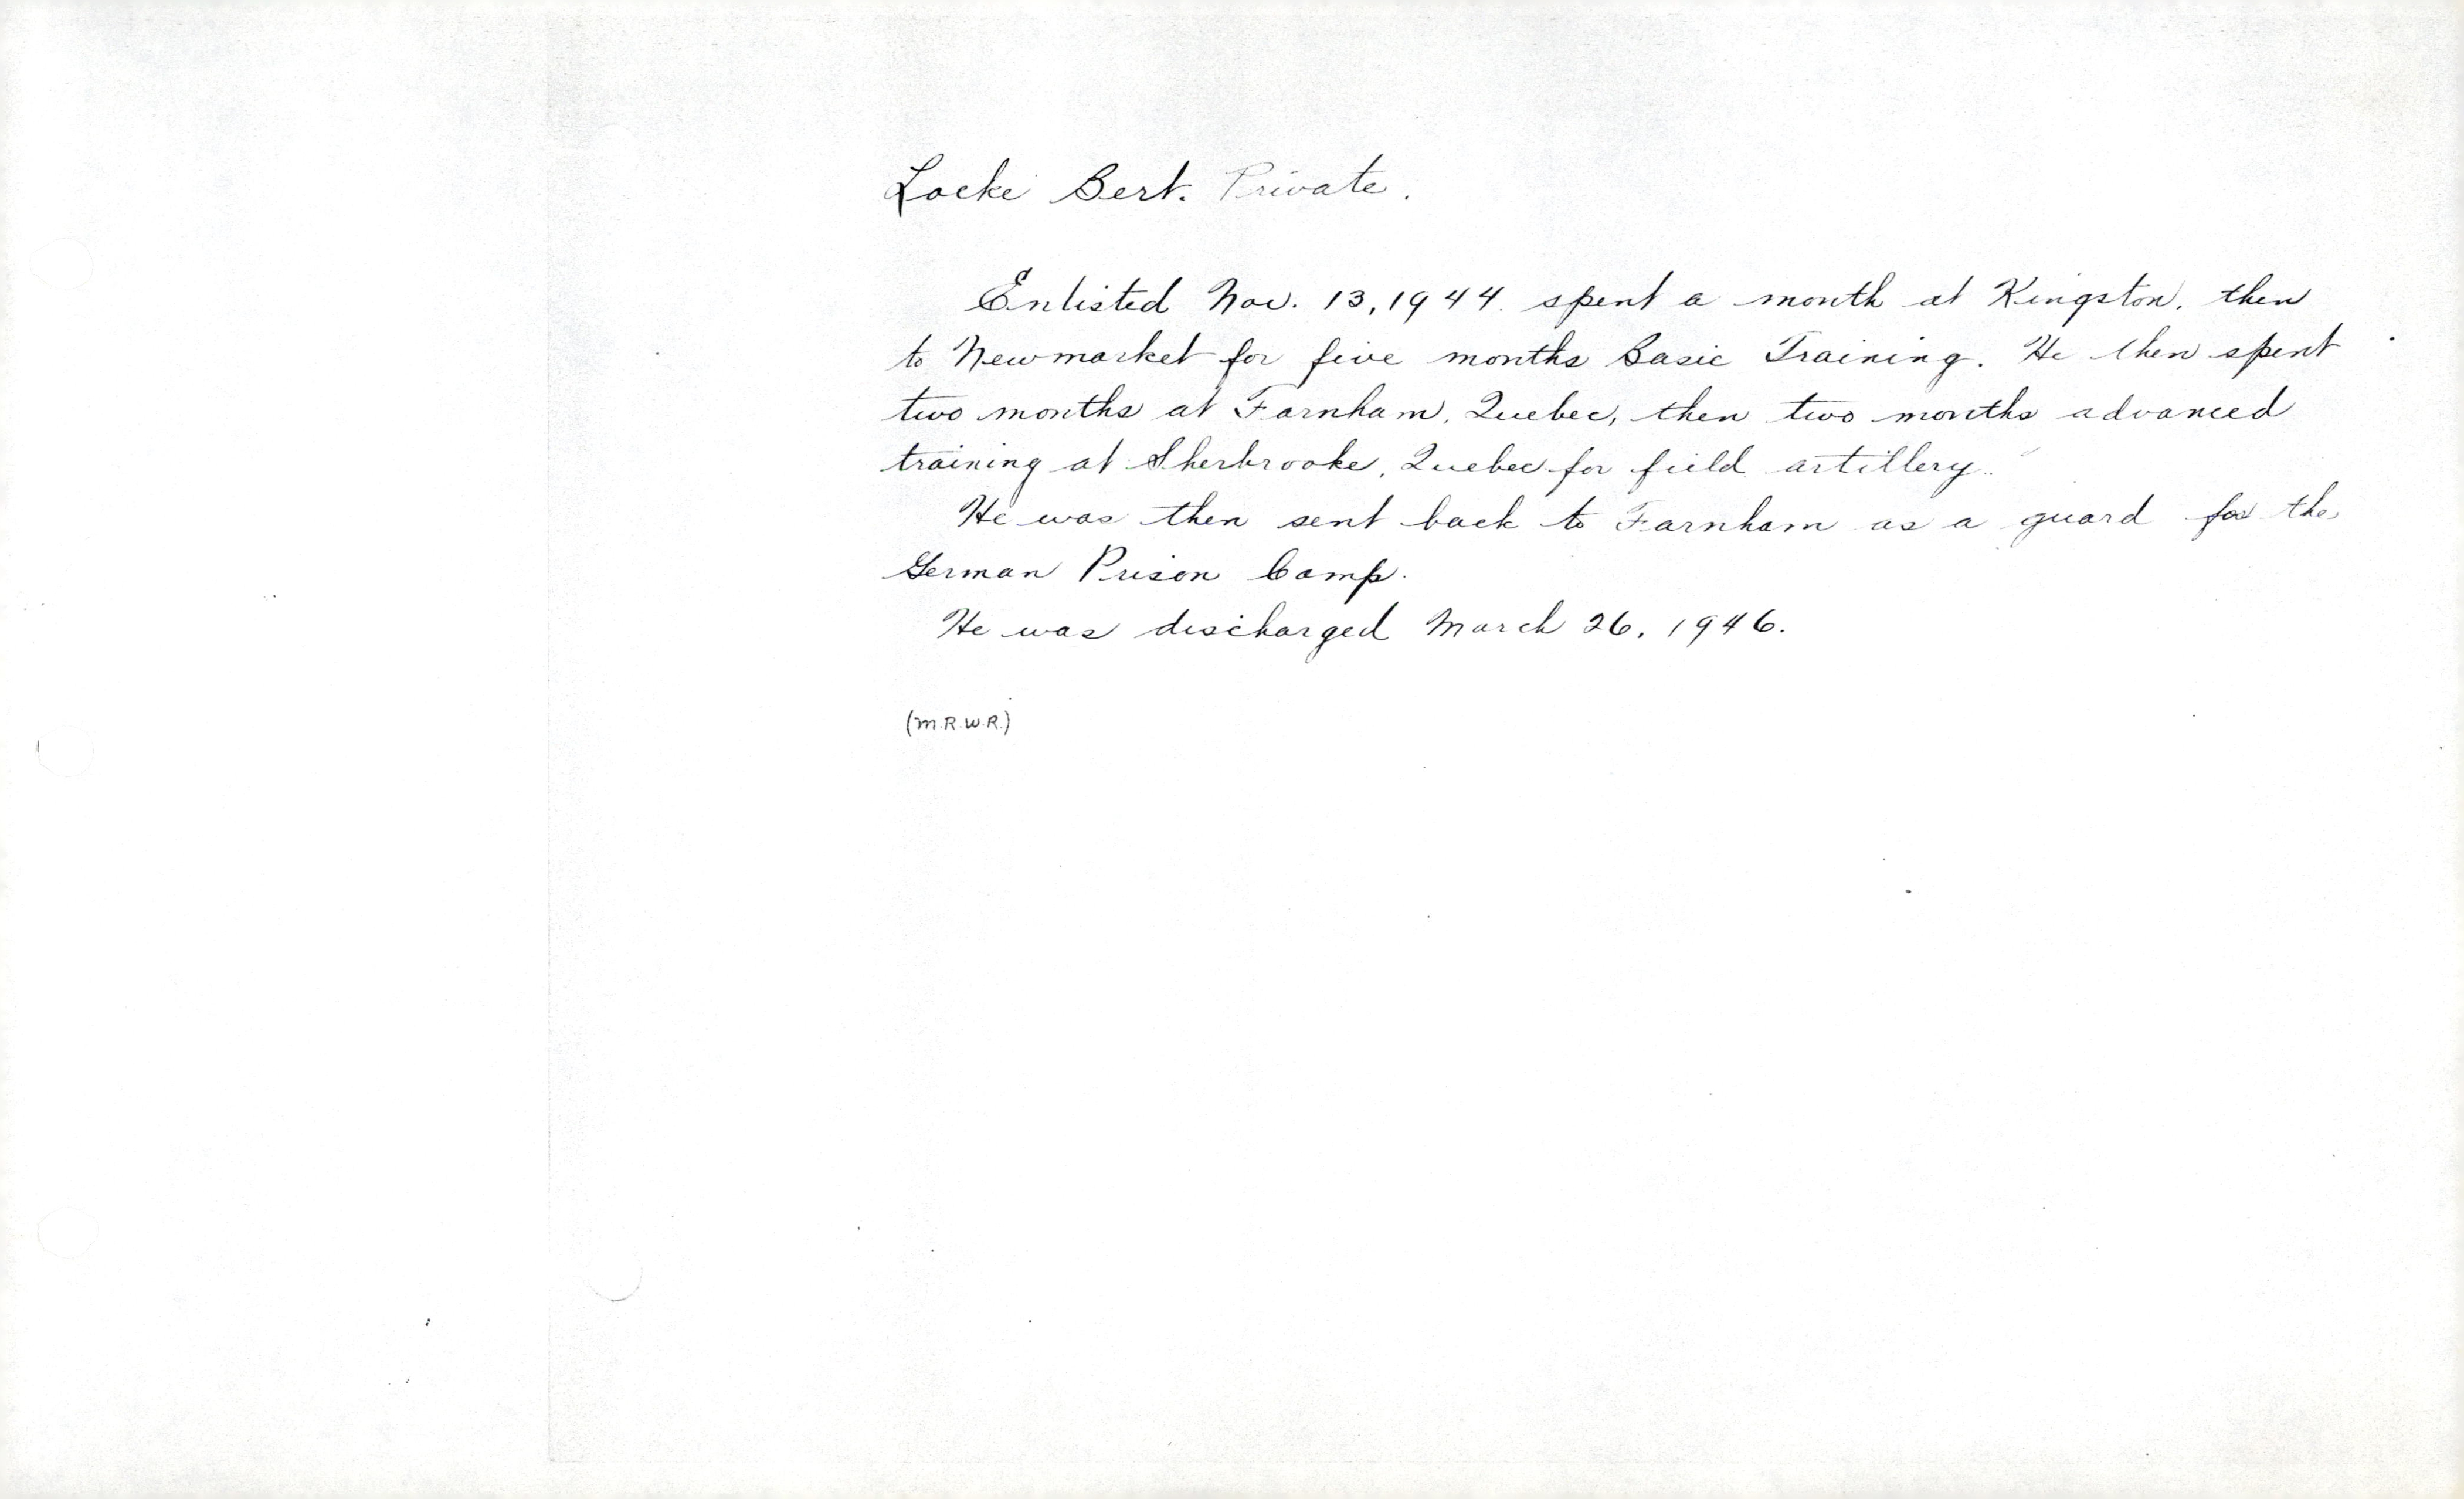 Locke Bert. Private.
Enlisted Nov. 13, 1944. spent a month at Kingston, then
to Newmarket for five months Basic Training. He then spent
two months at Farnham, Quebec, then two months advanced
training at Sherbrooke, Quebec for field artillery.
He was then sent back to Farnham as a guard for the
German Prison Camp.
He was discharged March 26, 1946.
(M.R.W.R.)